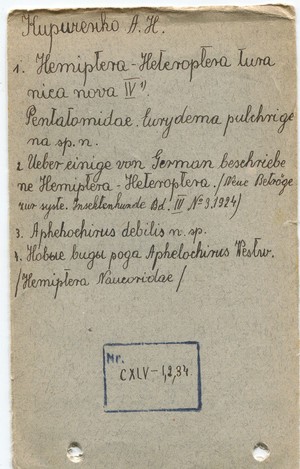 Кириченко А. Н.
1. Hemiptera-Heteroptera tura
nica nova IV").
Pentatomidae. Eurydema pulchrige
na sp. n.
2 Ueber einige von German beschriebe
ne Hemiptera-Heteroptera. /Neue Beträge
zur syste. Insektenkunde Bd. III № 3, 1924/
3. Aphehochirus debilis n. sp.
4. Новые виды рода Aphelochirus Westw.
/Hemiptera Naucoridae/
Nr.
CXLV-1,2,3,4.